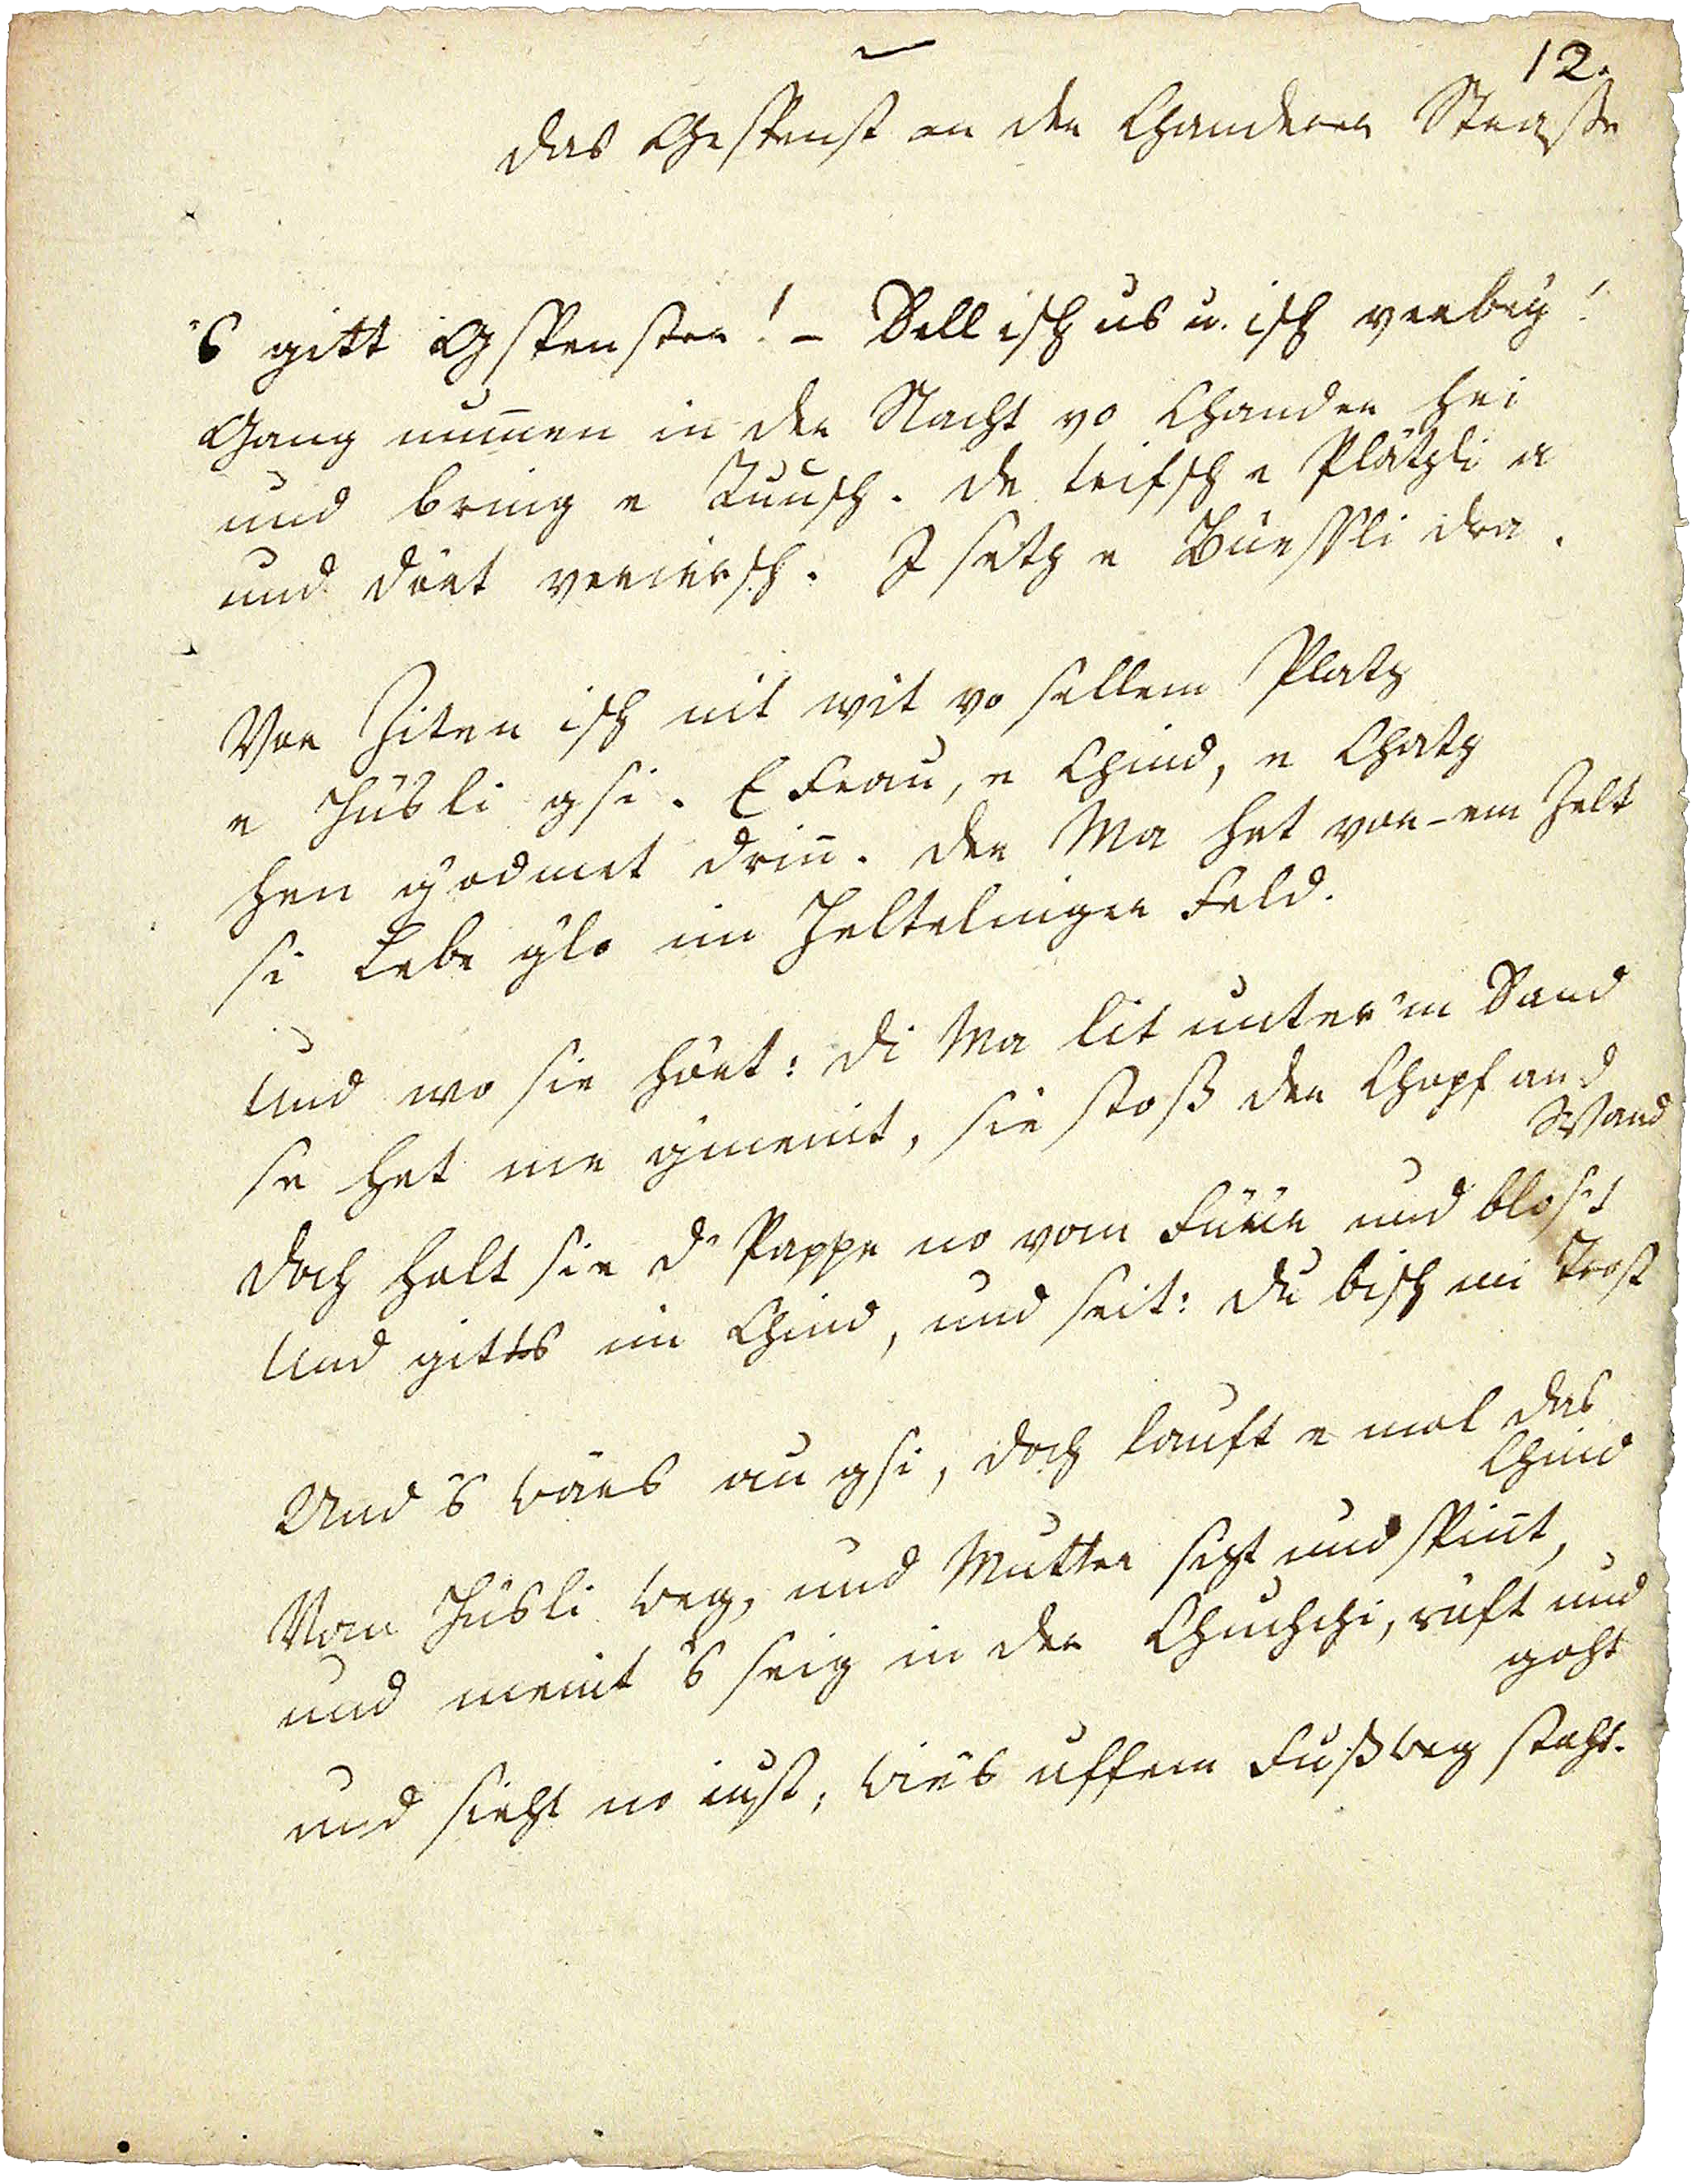 12.
Das Gespenst an der Chanderer Straße
's gitt Gspenster! – Sell isch us u. isch verbey!
Gang num̅en in der Nacht vo Chander hei
und bring e Ruusch. De trifsch e Plätzli a
und dört verirrsch. I setz e Büeßli dra.
Vor Ziten isch nit wit vo sellem Platz
e Hüsli gsi. E Frau, e Chind, e Chatz
hen g'odmet drin̅. Der Ma het vor-em Zelt
si Lebe g'lo im Heltelinger Feld.
Und wo sie hört: Di Ma lit unter'm Sand
se het me g'meint, sie stoß der Chopf an d
Wand
Doch holt sie d' Pappe no vom Füür und blost
Und gitts im Chind, und seit: Du bisch mi Trost
Und 's wärs au gsi, doch lauft e mol das
Chind
Vom Hüsli weg, und Mutter sizt und spin̅t,
und meint 's seig in der Chuchchi, rüft und
goht
und sieht no iust, wie's uffem Fußweg stoht.